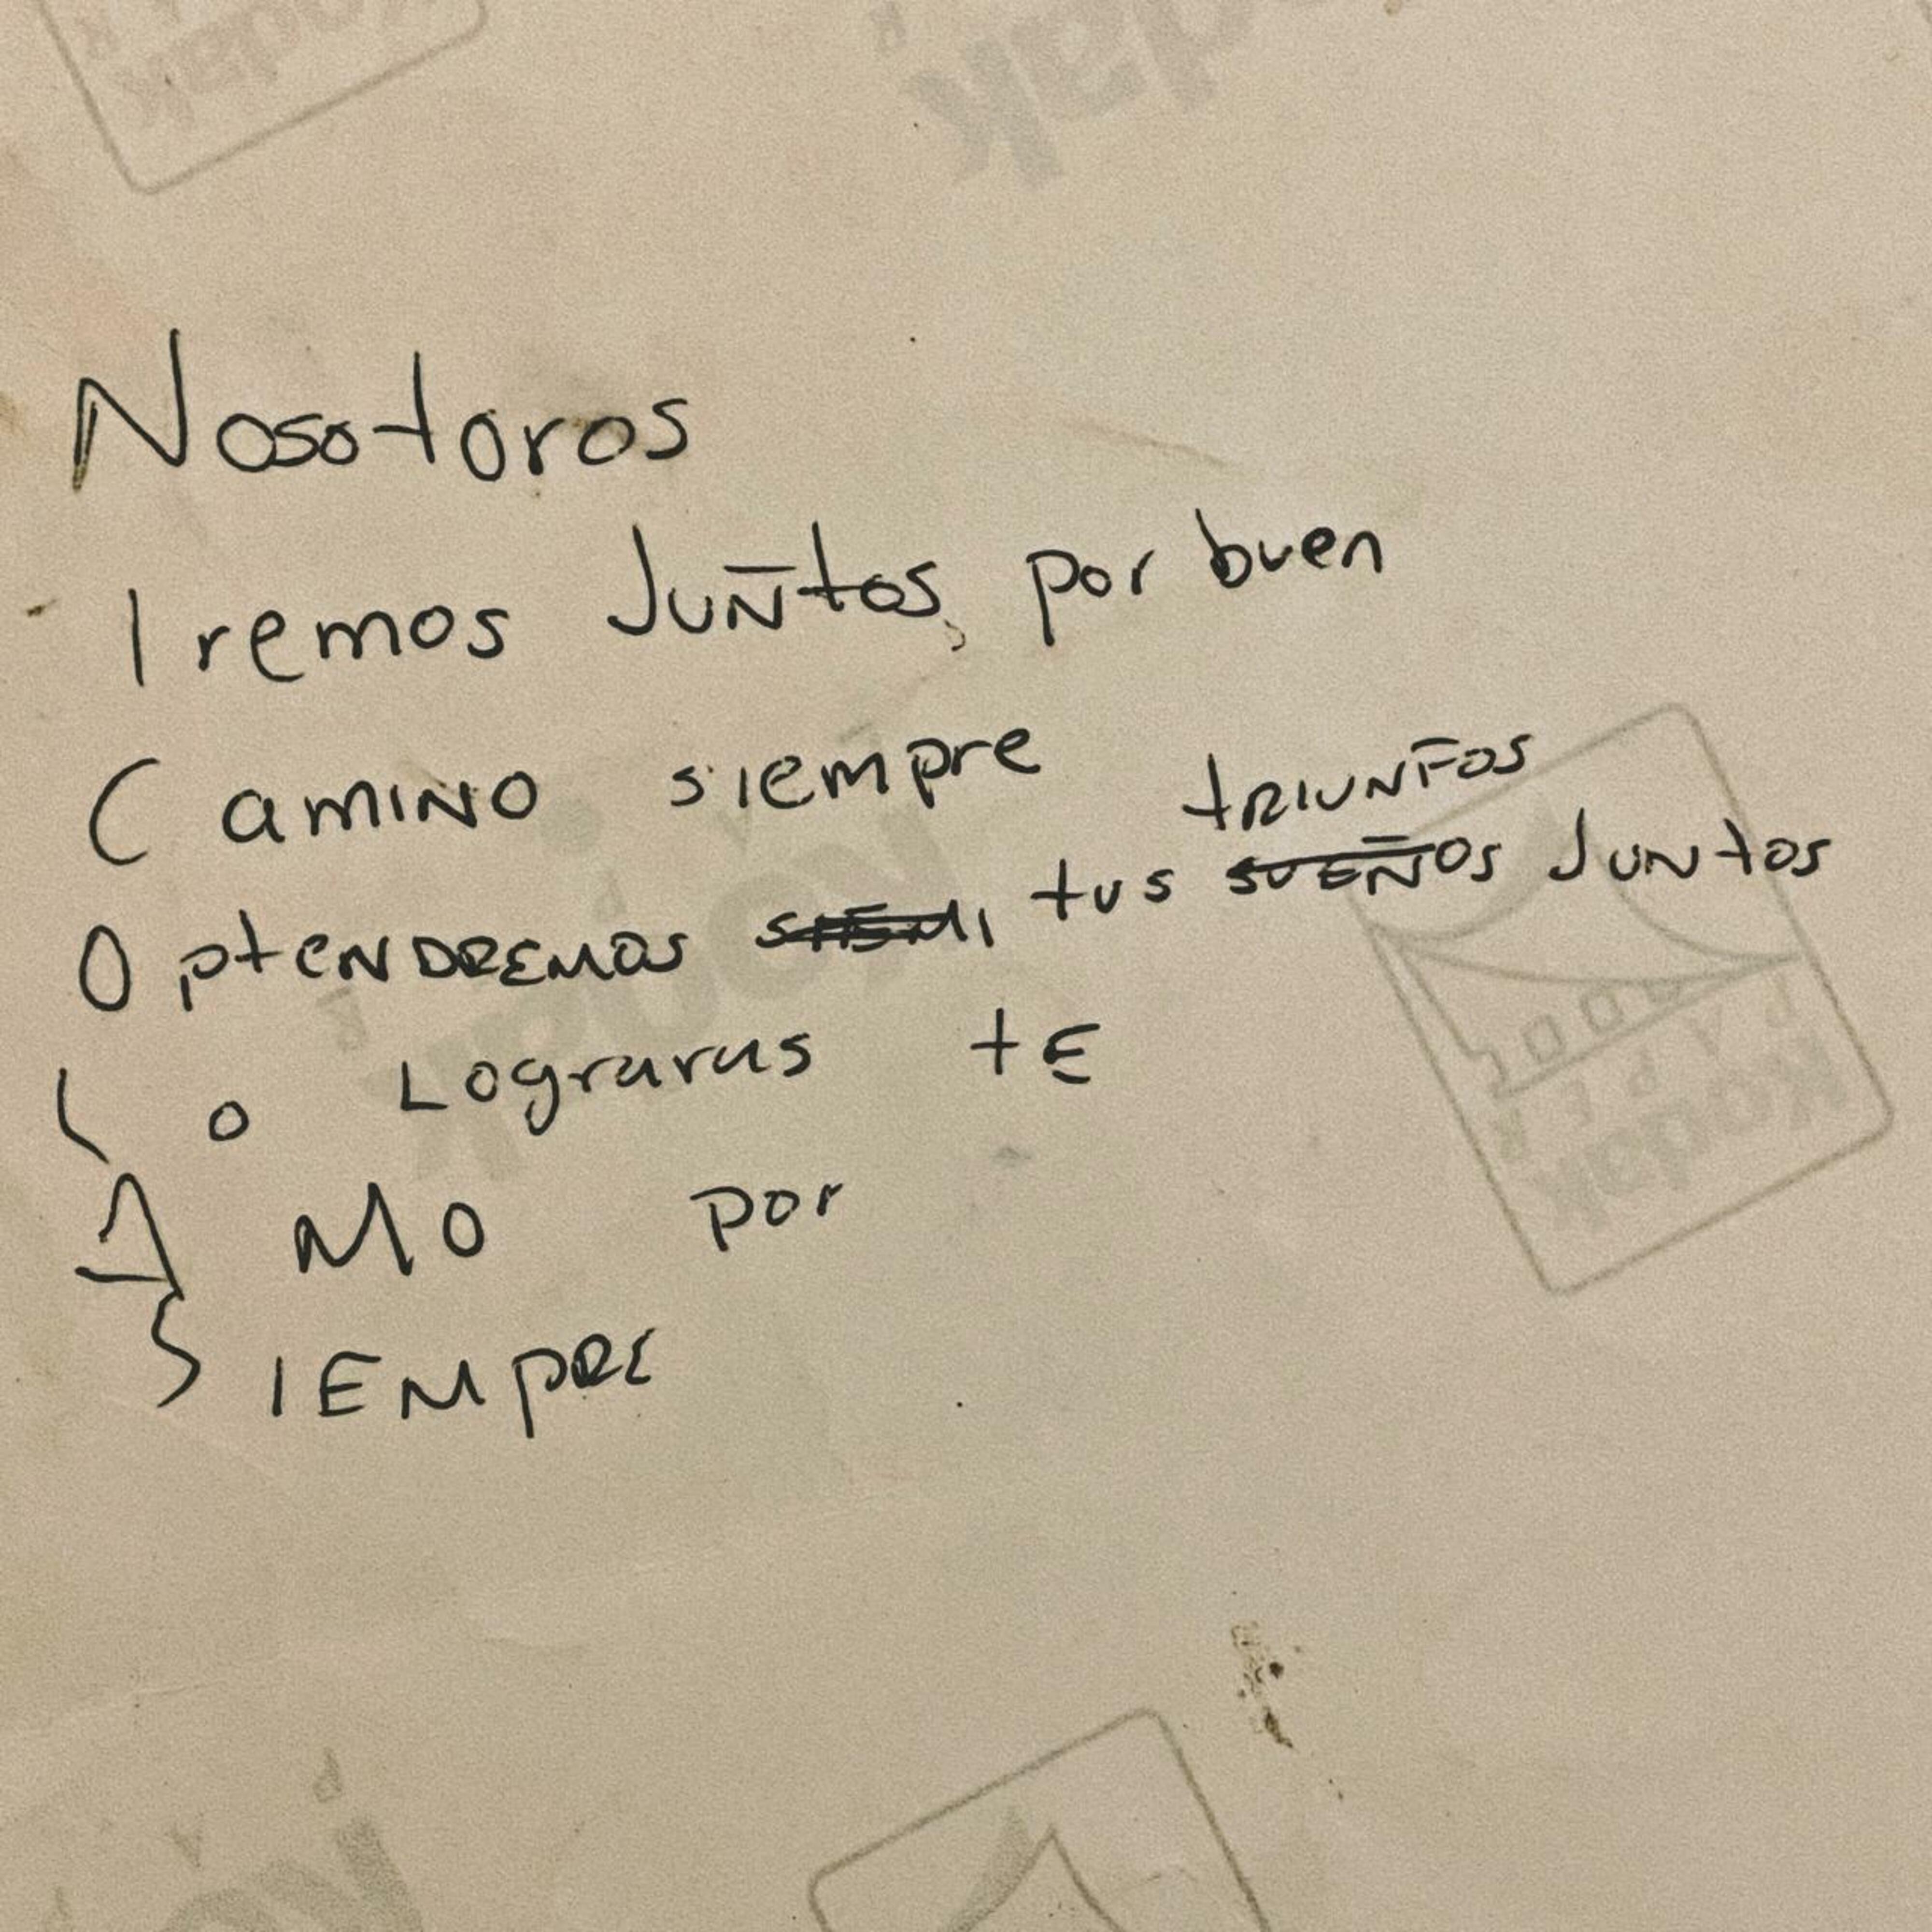 Nosotoros
Iremos Juñtos, por buen
Camino siempre
triunfos
Optendremos tus sueños Juntos
Lo Lograras te
Amo por
Siempre
Kodak
PAPER
Kodak